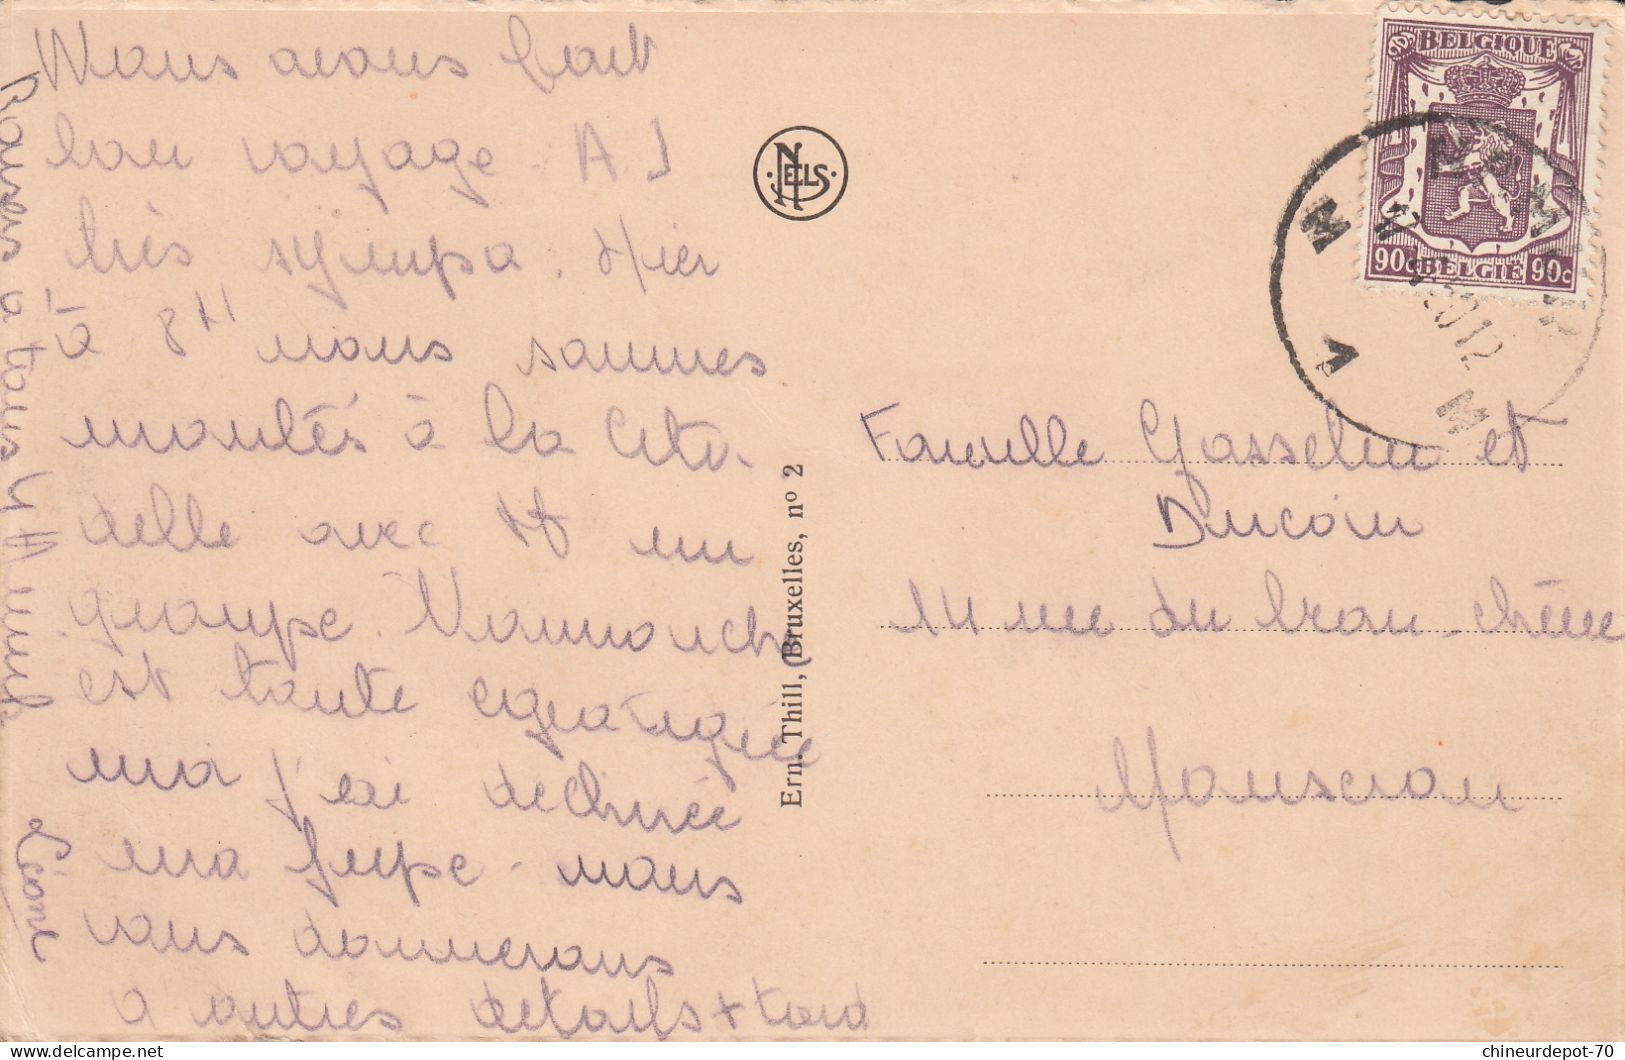 Nous avons fait
bon voyage. A J
très sympa. Hier
à 8H nous sommes
montés à la Cita-
delle avec un
groupe. Nanouche
est toute égratignée
moi j'ai déchiré
ma jupe - nous
vous donnerons
d'autres détails + tard
Baisers à tous
Léone
NELS
Ern. Thill, Bruxelles, no 2
BELGIQUE
90c BELGIË 90c
NAMUR
1
Famille Gasselin et
Ducoin
14 rue du beau-chêne
Mouscron
chineurdepot-70